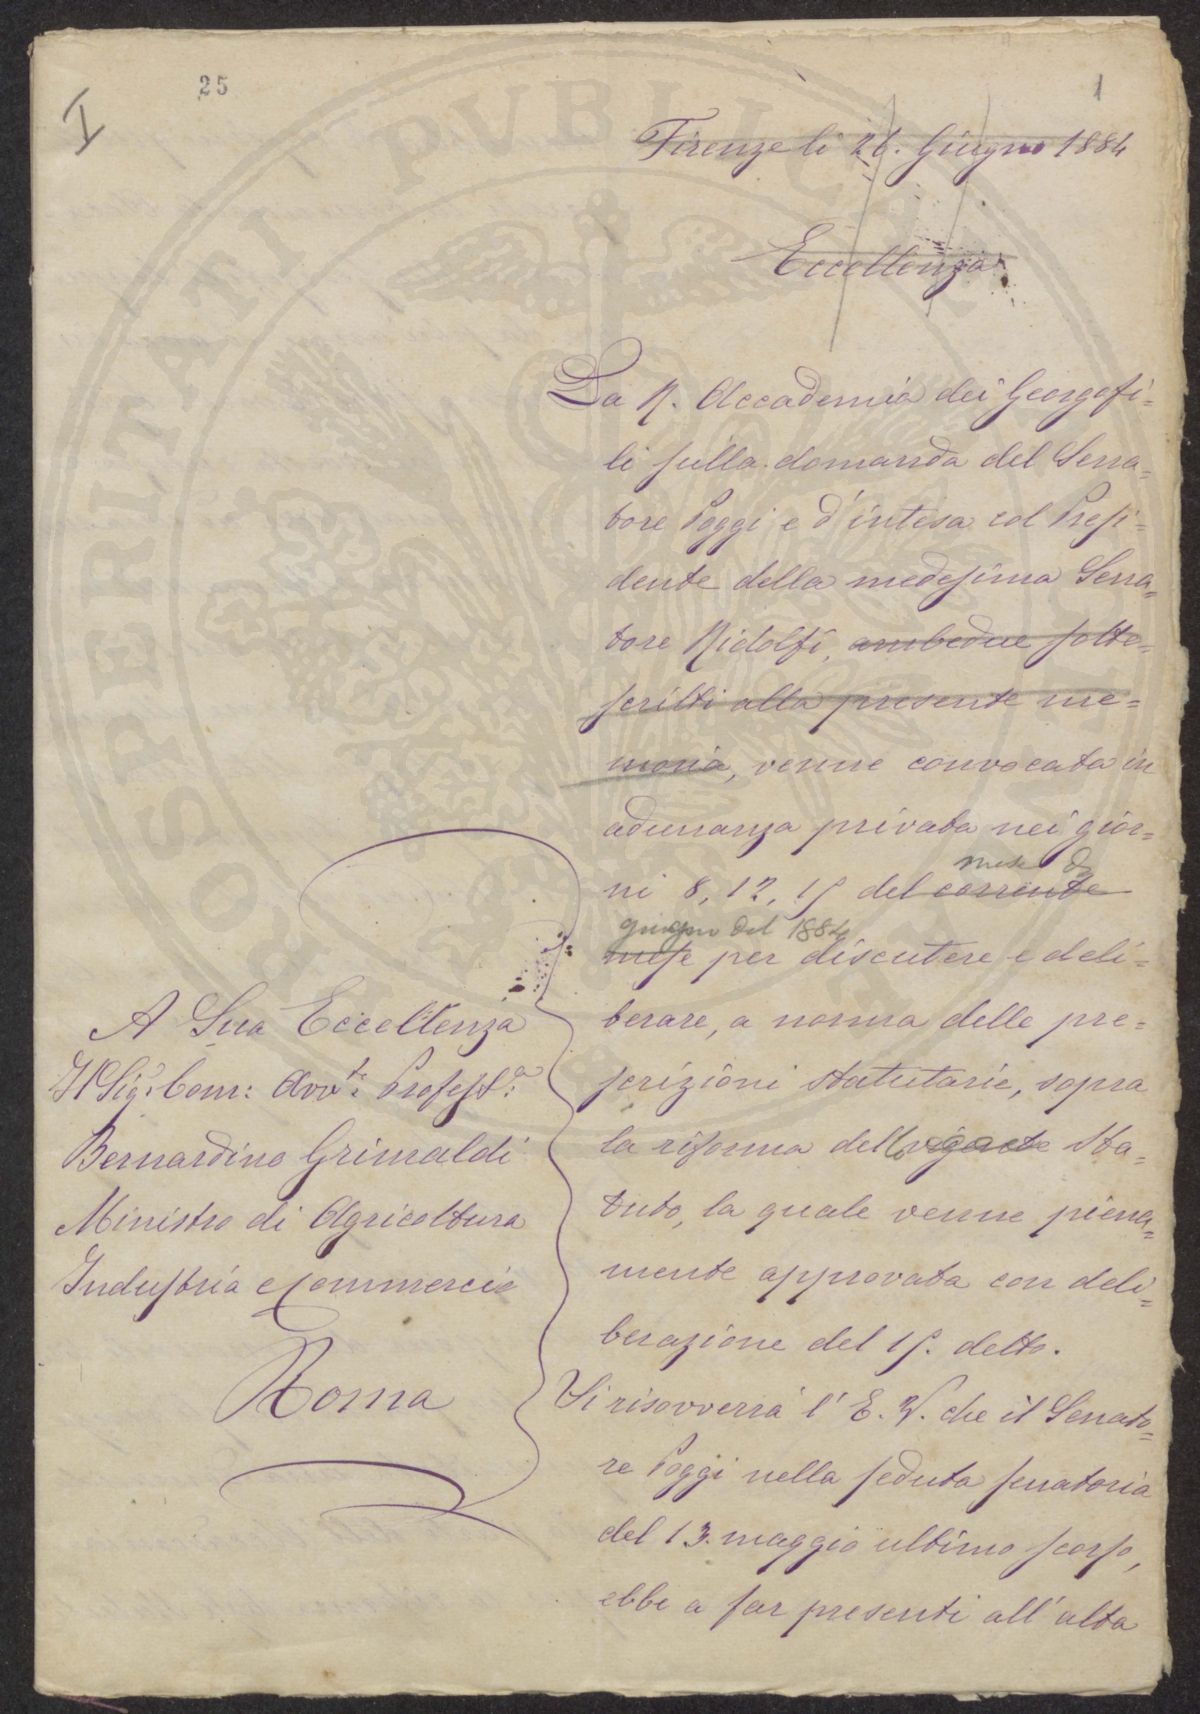 25
1
I
Firenze li 26. Giugno 1884
Eccellenza
La R. Accademia dei Georgofi=
li sulla domanda del Sena=
tore Poggi e d'intesa col Presi=
dente della medesima Sena=
tore Ridolfi, ambedue sotto=
scritti alla presente me=
moria, venne convocata in
adunanza privata nei gior=
ni 8, 12, 15 del corrente
mese di
giugno del 1884
mese per discutere e deli=
berare, a norma delle pre=
scrizioni statutarie, sopra
la riforma dello vigente Sta=
tuto, la quale venne piena=
mente approvata con deli=
berazione del 15. detto.
Si risovverrà l'E. V. che il Senato=
re Poggi nella seduta senatoria
del 13. maggio ultimo scorso,
ebbe a far presenti all'alta
A Sua Eccellenza
Il Sig.r Com: Avv.to Profess.r
Bernardino Grimaldi
Ministro di Agricoltura
Industria e Commercio
Roma
PROSPERITATI PVBLICAE